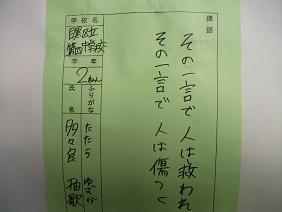 標語
その一言で 人は救われ
その一言で 人は傷つく
学校名
区立
学校
学年
2ねん
ふりがな
氏名
たたら ゆずか
多々良 柚歌